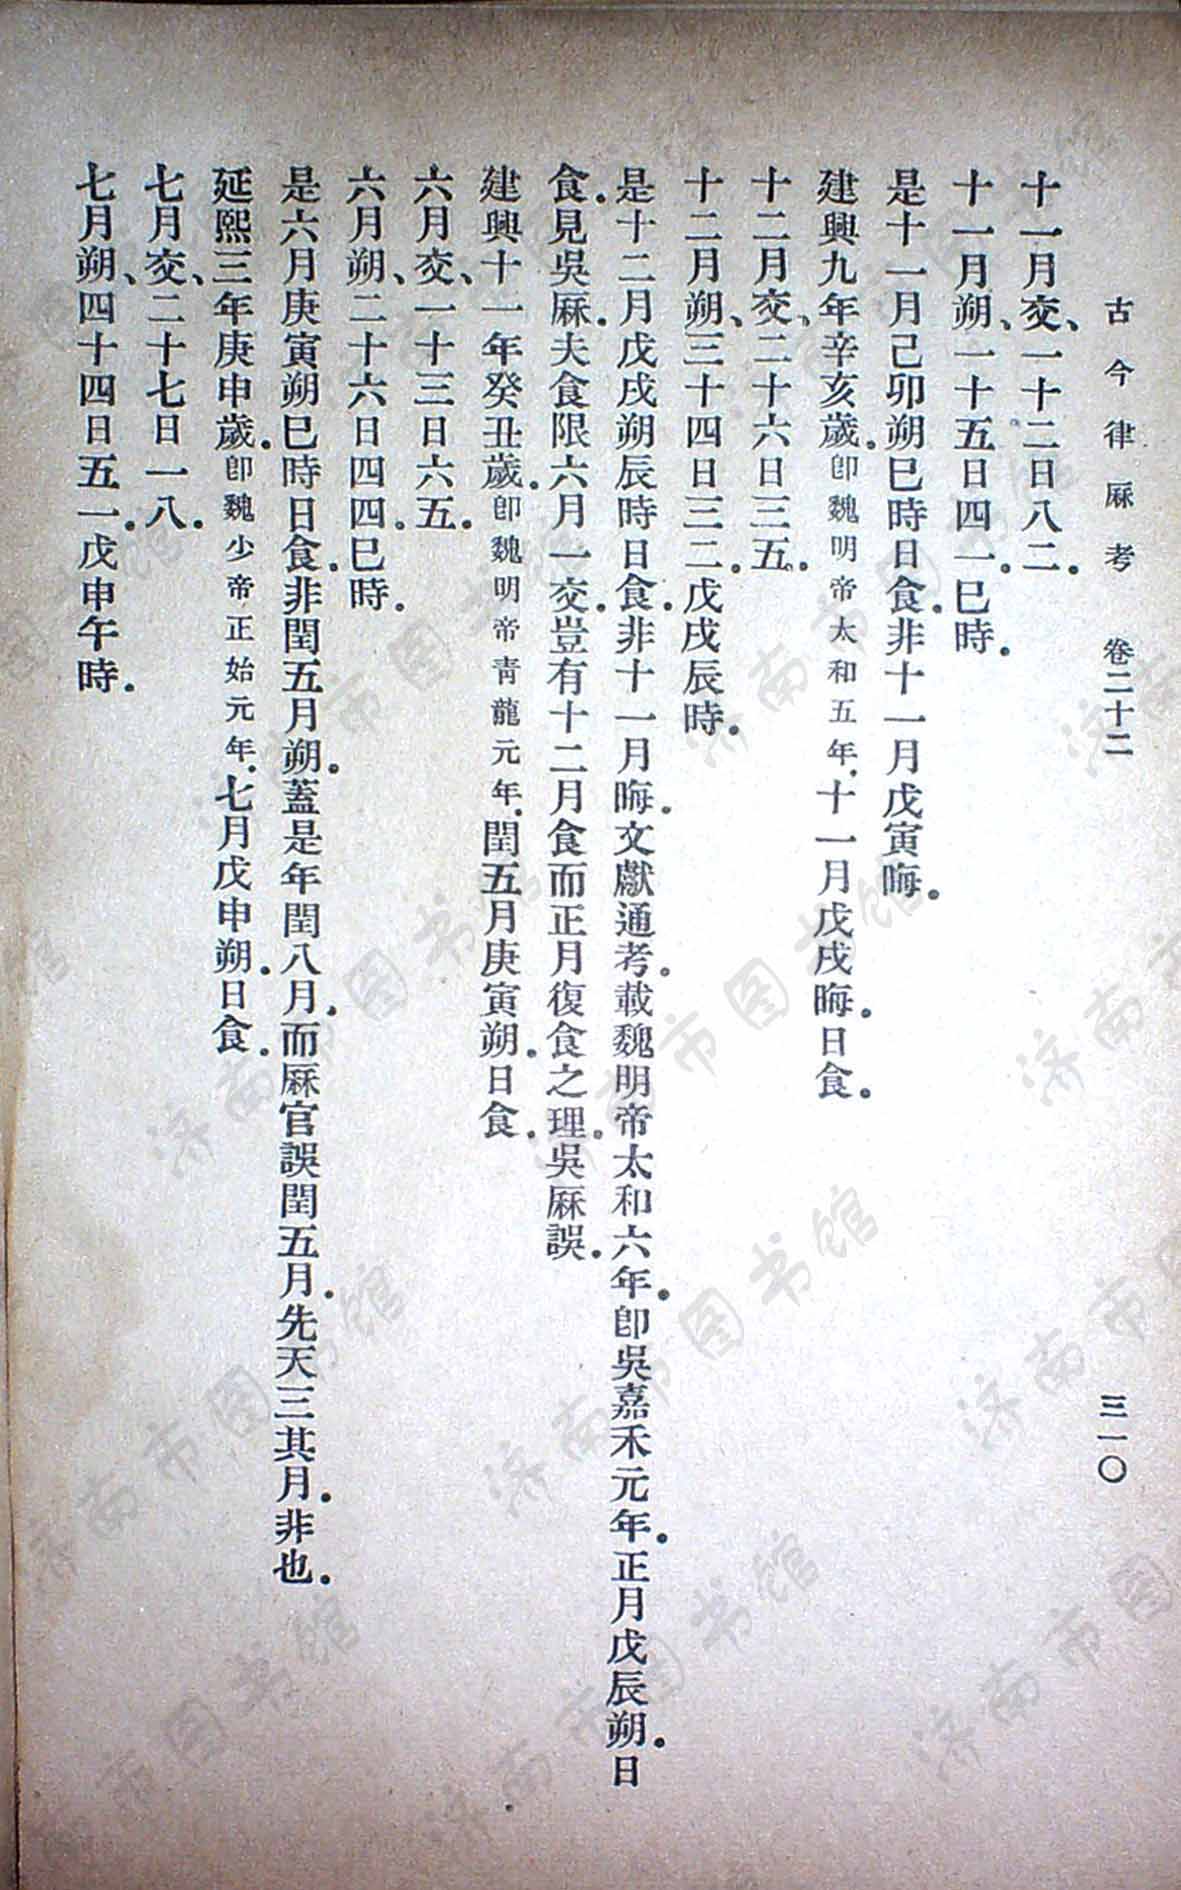 古今律厤考　卷二十二　三一〇
十一月交、一十二日八二．
十一月朔、一十五日四一．巳時．
是十一月己卯朔巳時日食．非十一月戊寅晦．
建興九年辛亥歲．卽魏明帝太和五年．十一月戊戌晦．日食．
十二月交、二十六日三五．
十二月朔、三十四日三二．戊戌辰時．
是十二月戊戌朔辰時日食．非十一月晦．文獻通考．載魏明帝太和六年．卽吳嘉禾元年．正月戊辰朔．日
食．見吳厤．夫食限六月一交．豈有十二月食而正月復食之理．吳厤誤．
建興十一年癸丑歲．卽魏明帝靑龍元年．閏五月庚寅朔．日食．
六月交、一十三日六五．
六月朔、二十六日四四．巳時．
是六月庚寅朔巳時日食．非閏五月朔．蓋是年閏八月．而厤官誤閏五月．先天三其月．非也．
延熙三年庚申歲．卽魏少帝正始元年．七月戊申朔．日食．
七月交、二十七日一八．
七月朔、四十四日五一．戊申午時．
济南市图书馆